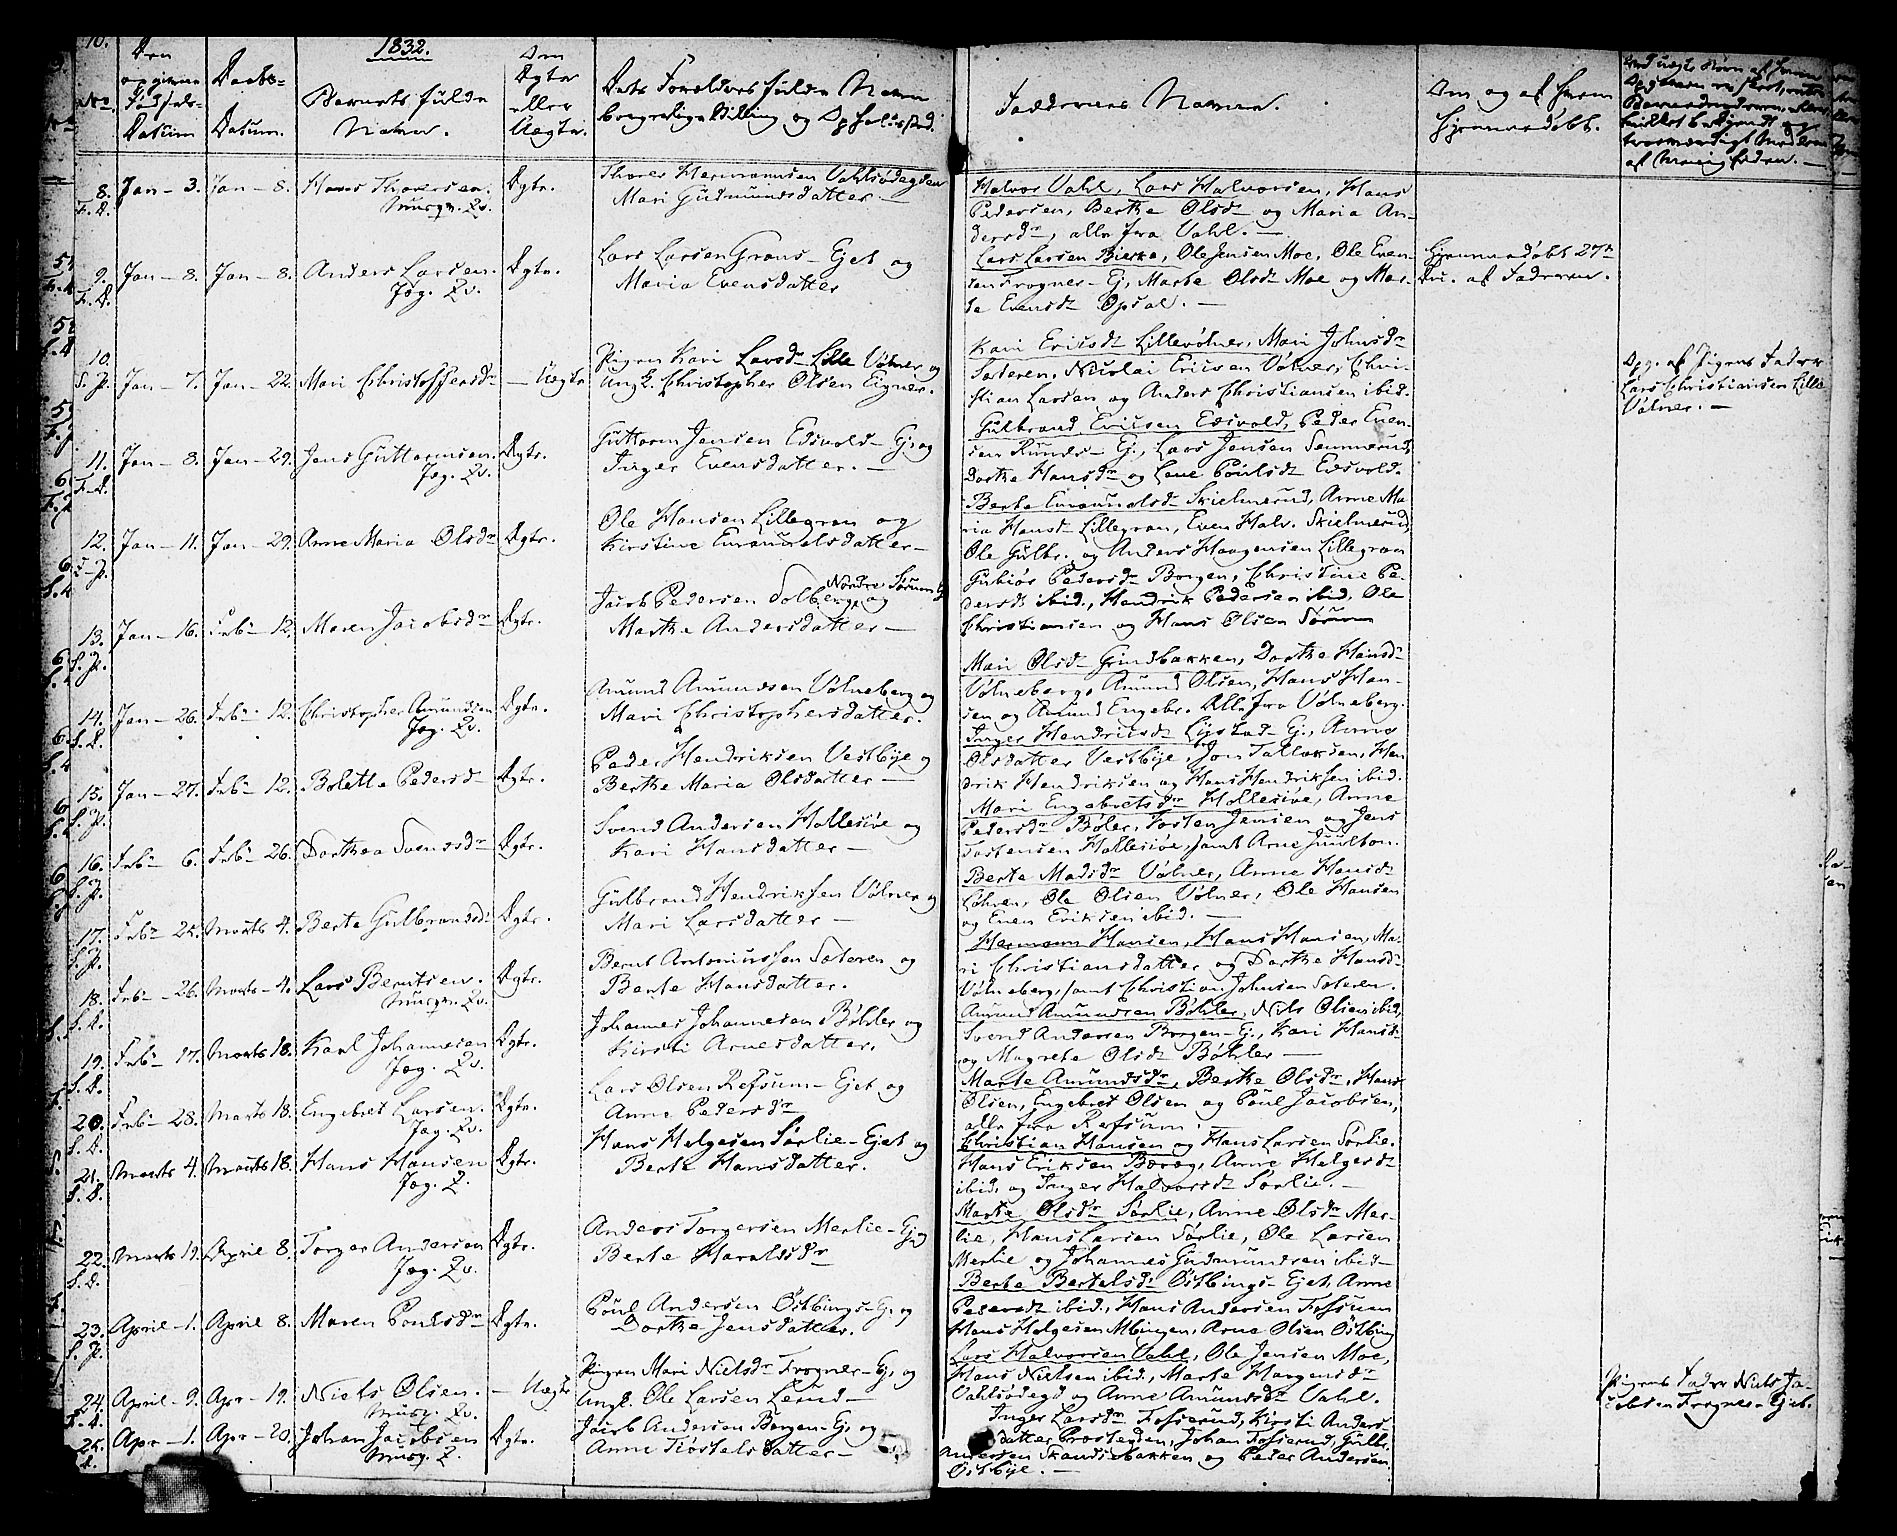 10.
1832.
No.
Den opgivne Fødsels-Datum
Daabs-Datum.
Barnets fulde Navn.
Om Ægte eller Uægte.
Dets Forældres fulde Navn
borgerlige Stilling og Opholdssted.
Faddernes Navne.
Om og af hvem hjemmedøbt.
8. Jan – 3. Jan – 8. Hans Thoresen. Ægte. Thorer Hermansen Vahlsødegden
Mari Gudmundsdatter. –
Halvor Vahl, Lars Halvorsen, Hans
Pedersen, Berthe Olsdr og Maria An-
dersdr, alle fra Vahl. –
9. Jan – 8. Jan – 8. Anders Larsen. Ægte. Lars Larsen Graus – Ejet og
Jag. Zv. Maria Evensdatter
Lars Larsen Bierke, Ole Jensen Moe, Ole Even-
sen Frogner – Ej, Marthe Olsdr Moe og Mar-
the Evensdr Opsal. –
Hjemmedøbt 27de
Dec. af Faderen.
10. Jan – 7. Jan – 22. Mari Christoffersdr – Uægte Pigen Kari Larsdr Lille Vølner og
Ungk. Christopher Olsen Eigner.
Kari Ericsdr Lillevølner, Mari Johnsdr
Sæteren, Nicolai Ericsen Vølner, Chri-
stian Larsen og Anders Christiansen ibid.
Opg. af Pigens Fader
Lars Christiansen Lille
Vølner. –
11. Jan – 8. Jan – 29. Jens Guttormsen. Ægte. Guttorm Jensen Edsvold – Ej. og
Jag. Zv. Inger Evensdatter. –
Gulbrand Ericsen Edsvold, Peder Even-
sen Runds – Ej., Lars Jensen Sommerud,
Dorthe Hansdr og Lene Poulsdr Edsvold.
12. Jan – 11. Jan – 29. Anne Maria Olsdr Ægte. Ole Hansen Lillegran og
Kirstine Emanuelsdatter –
Berte Emanuelsdr Skielmerud, Anne Ma-
ria Hansdr Lillegran, Even Halv. Skielmerud,
Ole Gulbr. og Anders Haagensen Lillegran
13. Jan – 16. Feb – 12. Maren Jacobsdr Ægte. Jacob Pedersen Solberg, Nordre Sørum Ej og
Marthe Andersdatter –
Gubiør Pedersdr Borgen, Christine Pe-
dersdr ibid., Hendrik Pedersen ibid. Ole
Christiansen og Hans Olsen Sørum
14. Jan – 26. Feb – 12. Christopher Amundsen Ægte. Amund Amundsen Vølneberg og
Jag. Zv. Mari Christophersdatter.
Mari Olsdr Grindbakken, Dorthe Hansdr
Vølneberg, Amund Olsen, Hans Han-
sen og Amund Engebr. Alle fra Vølneberg.
15. Jan – 27. Feb – 12. Bolette Pedersdr Ægte. Peder Hendriksen Vestbye og
Berthe Maria Olsdatter –
Inger Hendricsdr Lystad – Ej., Anne
Olsdatter Vestbye, Jon Tallaksen, Hen
drik Hendriksen og Hans Hendriksen ibid.
16. Feb – 6. Feb – 26. Dorthea Svensdr Ægte. Svend Andersen Hollesiøe og
Kari Hansdatter –
Mari Engebretsdr Hollesiøe, Anne
Pedersdr Bøler, Tosten Jensen og Jens
Tostensen Hollesiøe, samt Arne Juulton.
17. Feb – 25. Marts 4. Berte Gulbrandsdr Ægte. Gulbrand Hendriksen Vølner og
Mari Larsdatter –
Berte Madsdr Vølner, Anne Hansdr
Løhren, Ole Olsen Vølner, Ole Hansen
og Even Eriksen ibid. –
18. Feb – 26. Marts – 4. Lars Berntsen. Ægte. Bernt Antonius­sen Sæteren og
Berte Hansdatter.
Hermann Hansen, Hans Hansen, Ma-
ri Christiansdatter og Dorthe Hansdr
Vølneberg, samt Christian Johnsen Sæteren.
19. Feb – 17. Marts 18. Karl Johannesen Ægte. Johannes Johannesen Bøhler og
Jag. Zv. Kirsti Arnesdatter.
Amund Amundsen Bøhler, Niels Olsen ibid,
Svend Andersen Borgen – Ej., Kari Hansdr
og Magrete Olsdr Bøhler –
20. Feb – 28. Marts 18. Engebret Larsen. Ægte. Lars Olsen Refsum – Ejet og
Jag. Zv. Anne Pedersdr
Marte Amundsdr, Berthe Olsdr, Hans
Olsen, Engebret Olsen og Poul Jacobsen,
alle fra Refsum.
21. Marts 4. Marts 18. Hans Hansen Ægte. Hans Helgesen Sørlie – Ejet og
Jag. Z. Berte Hansdatter.
Christian Hansen og Hans Larsen Sørlie.
Hans Eriksen Berg, Anne Helgesdr
ibid. og Inger Halvorsdr Sørlie. –
22. Marts 19. April 8. Torger Andersen Ægte. Anders Torgersen Merlie – Ej. og
Jag. Zv. Berte Haraldsdr
Marthe Olsdr Sørlie, Anne Olsdr Mer-
lie, Hans Larsen Sørlie, Ole Larsen
Merlie og Johannes Gudmundsen ibid –
23. April – 1. April 8. Maren Poulsdr Ægte. Poul Andersen Østbings – Ej. og
Dorthe Jensdatter.
Berte Bertelsdr Østbings – Ejet, Anne
Pedersdr ibid., Hans Andersen Fossum
Hans Helgesen Mbingen, Arne Olsen Østbing
24. April – 9. Apr – 19. Niels Olsen. – Uægte Pigen Mari Nielsdr Frogner – Ej, og
Musq. Zv. Ungk. Ole Larsen Lerud –
Lars Halvorsen Vahl, Ole Jensen Moe,
Hans Nielsen ibid., Marte Hansdr
Vahlsødegd og Anne Amundsdr Vahl.
Pigens Fader Niels Ja-
cobsen Frogner – Ejet.
25. Apr – 1. Apr – 20. Johan Jacobsen Ægte. Jacob Andersen Borgen – Ej. og
Musq. Z. Anne Kiøstelsdatter –
Inger Larsdr Fossierud, Kirsti Anders
datter Prestegden, Johan Fossierud, Gulbr.
Andersen Skandsebakken og Peder Andersen
Østbye. –